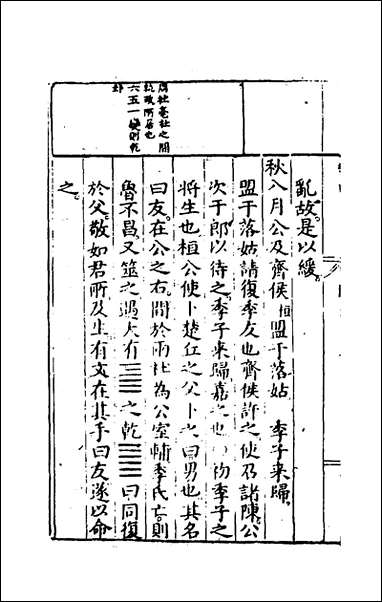 周社亳社之間
執政所居也
六五一變則乾
卦
亂故是以緩
秋八月公及齊侯桓盟于落姑 季子來歸
盟于落姑請復季友也齊侯許之使召諸陳公
次于郎以待之季子來歸嘉之也 初季子之
將生也桓公使卜楚丘之父卜之曰男也其名
曰友在公之右間於兩社為公室輔季氏亡則
魯不昌又筮之遇大有☲☰之乾☰☰曰同復
於父敬如君所及生有文在其手曰友遂以命
之